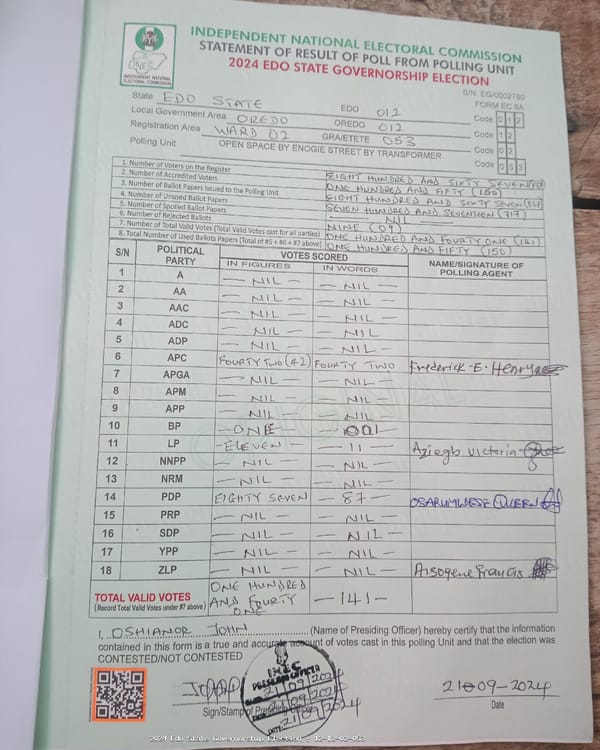 INDEPENDENT NATIONAL ELECTORAL COMMISSION
STATEMENT OF RESULT OF POLL FROM POLLING UNIT
2024 EDO STATE GOVERNORSHIP ELECTION
INEC
INDEPENDENT NATIONAL ELECTORAL COMMISSION
S/N: EG/0002780
FORM EC 8A
State EDO STATE EDO 012 Code 0 1 2
Local Government Area OREDO OREDO 012 Code 1 2
Registration Area WARD 02 GRA/ETETE 053 Code 0 2
Polling Unit OPEN SPACE BY ENOGIE STREET BY TRANSFORMER Code 0 5 3
1. Number of Voters on the Register EIGHT HUNDRED AND SIXTY SEVEN
2. Number of Accredited Voters ONE HUNDRED AND FIFTY (150)
3. Number of Ballot Papers Issued to the Polling Unit EIGHT HUNDRED AND SIXTY SEVEN
4. Number of Unused Ballot Papers SEVEN HUNDRED AND SEVENTEEN (717)
5. Number of Spoiled Ballot Papers — NIL —
6. Number of Rejected Ballots NINE (09)
7. Number of Total Valid Votes (Total Valid Votes cast for all parties) ONE HUNDRED AND FOURTY ONE (141)
8. Total Number of Used Ballot Papers (Total of #5 + #6 + #7 above) ONE HUNDRED AND FIFTY (150)
S/N POLITICAL PARTY VOTES SCORED NAME/SIGNATURE OF POLLING AGENT
IN FIGURES IN WORDS
1 A — NIL — — NIL —
2 AA — NIL — — NIL —
3 AAC — NIL — — NIL —
4 ADC — NIL — — NIL
5 ADP — NIL — — NIL —
6 APC FOURTY TWO (42) FOURTY TWO Frederick-E. Henry
7 APGA — NIL — — NIL —
8 APM — NIL — — NIL —
9 APP — NIL — — NIL —
10 BP — ONE — 001 —
11 LP — ELEVEN — — 11 — Victoria
12 NNPP — NIL — — NIL —
13 NRM — NIL — — NIL —
14 PDP EIGHTY SEVEN — 87 — OSARUMWESE QUEEN
15 PRP — NIL — — NIL —
16 SDP — NIL — — NIL —
17 YPP — NIL — — NIL —
18 ZLP — NIL — — NIL — Francis
TOTAL VALID VOTES ONE HUNDRED AND FOURTY ONE — 141 —
(Record Total Valid Votes under #7 above)
I, OSHIANOR JOHN (Name of Presiding Officer) hereby certify that the information
contained in this form is a true and accurate account of votes cast in this polling Unit and that the election was
CONTESTED/NOT CONTESTED
INEC
PRESIDING OFFICER
21/09/2024
21/09/2024
DATE: 21/09/2024
21-09-2024
Sign/Stamp of Date
2024 Edo State Governorship Election - 12-12-02-053